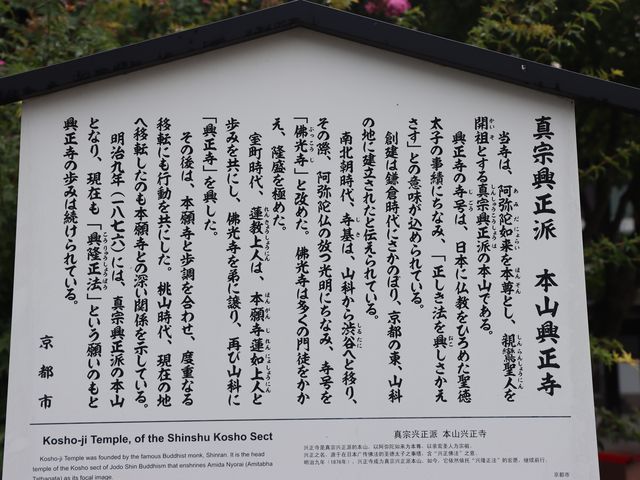 真宗興正派 本山興正寺
当寺は、阿弥陀如来を本尊とし、親鸞聖人を
開祖とする真宗興正派の本山である。
興正寺の寺号は、日本に仏教をひろめた聖徳
太子の事績にちなみ、「正しき法を興しさかえ
さす」との意味が込められている。
創建は鎌倉時代にさかのぼり、京都の東、山科
の地に建立されたと伝えられている。
南北朝時代、寺基は、山科から渋谷へと移り、
その際、阿弥陀仏の放つ光明にちなみ、寺号を
「佛光寺」と改めた。佛光寺は多くの門徒をかか
え、隆盛を極めた。
室町時代、蓮教上人は、本願寺蓮如上人と
歩みを共にし、佛光寺を弟に譲り、再び山科に
「興正寺」を興した。
その後は、本願寺と歩調を合わせ、度重なる
移転にも行動を共にした。桃山時代、現在の地
へ移転したのも本願寺との深い関係を示している。
明治九年（一八七六）には、真宗興正派の本山
となり、現在も「興隆正法」という願いのもと
興正寺の歩みは続けられている。
京都市
Kosho-ji Temple, of the Shinshu Kosho Sect
Kosho-ji Temple was founded by the famous Buddhist monk, Shinran. It is the head
temple of the Kosho sect of Jodo Shin Buddhism that enshrines Amida Nyorai (Amitabha
Tathagata) as its focal image.
真宗兴正派 本山兴正寺
兴正寺是真宗兴正派的本山，以阿弥陀如来为本尊，以亲鸾圣人为宗祖。
兴正之名，源于在日本广传佛法的圣德太子之事绩，含“兴正佛法”之意。
明治九年（1876年），兴正寺成为真宗兴正派本山，如今，它依然依托“兴隆正法”的宏愿，继续前行。
京都市